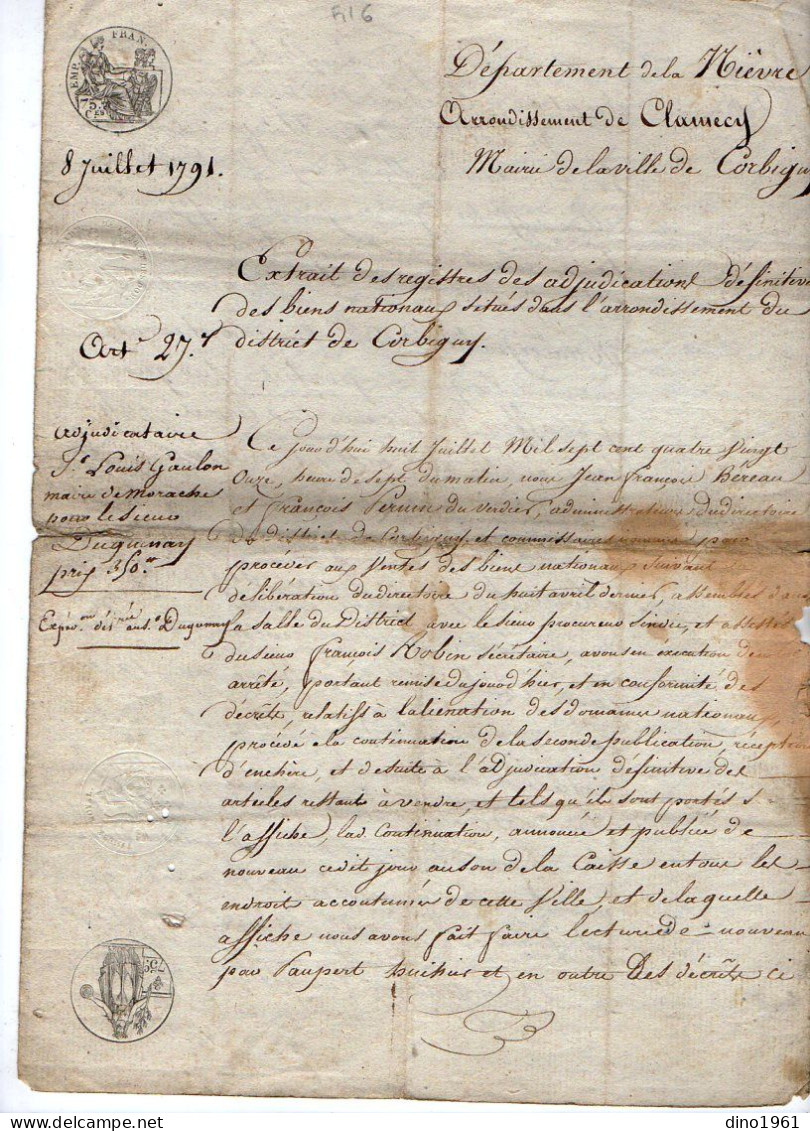 F16
EMP. FRAN.
75
Ces
Département de la Nièvre
Arrondissement de Clamecy
Mairie de la ville de Corbigny
8 Juillet 1791.
Extrait des registres des adjudications définitive
des biens nationaux situés dans l'arrondissement du
district de Corbigny.
Art. 27.
adjudicataire
Sr Louis Gaulon
maire de morache
pour le sieur
Duguenay
prix 350.tt
Expéd.on dél.rée au s.r Duguenay
Ce jourd'hui huit Juillet Mil sept cent quatre vingt
Onze, heure de sept du matin, nous Jean françois Béreau
et françois Perrin du verdier, administrateurs du directoire
du district de Corbigny et commissaires nommés pour
procéder aux Ventes des biens nationaux suivant
délibération du directoire du huit avril dernier, assemblés dans
la salle du District avec le sieur procureur sindic, et assistés
du sieur françois Robin secrétaire, avons en exécution de
arrêté, portant remise du jour d'hier, et en conformité des
décrets, relatifs à l'aliénation des domaines nationaux,
procédé a la continuation de la seconde publication, réception
d'enchère, et de suite à l'adjudication définitive des
articles restant à vendre, et tels qu'ils sont portés s
l'affiche, lad. Continuation, annoncée et publiée de
nouveau cedit jour au son de la Caisse en tous les
endroit accoutumés de cette Ville, et de laquelle
affiche nous avons fait faire lecture de nouveau
par Paupert huihier et en outre des décrets ci
75